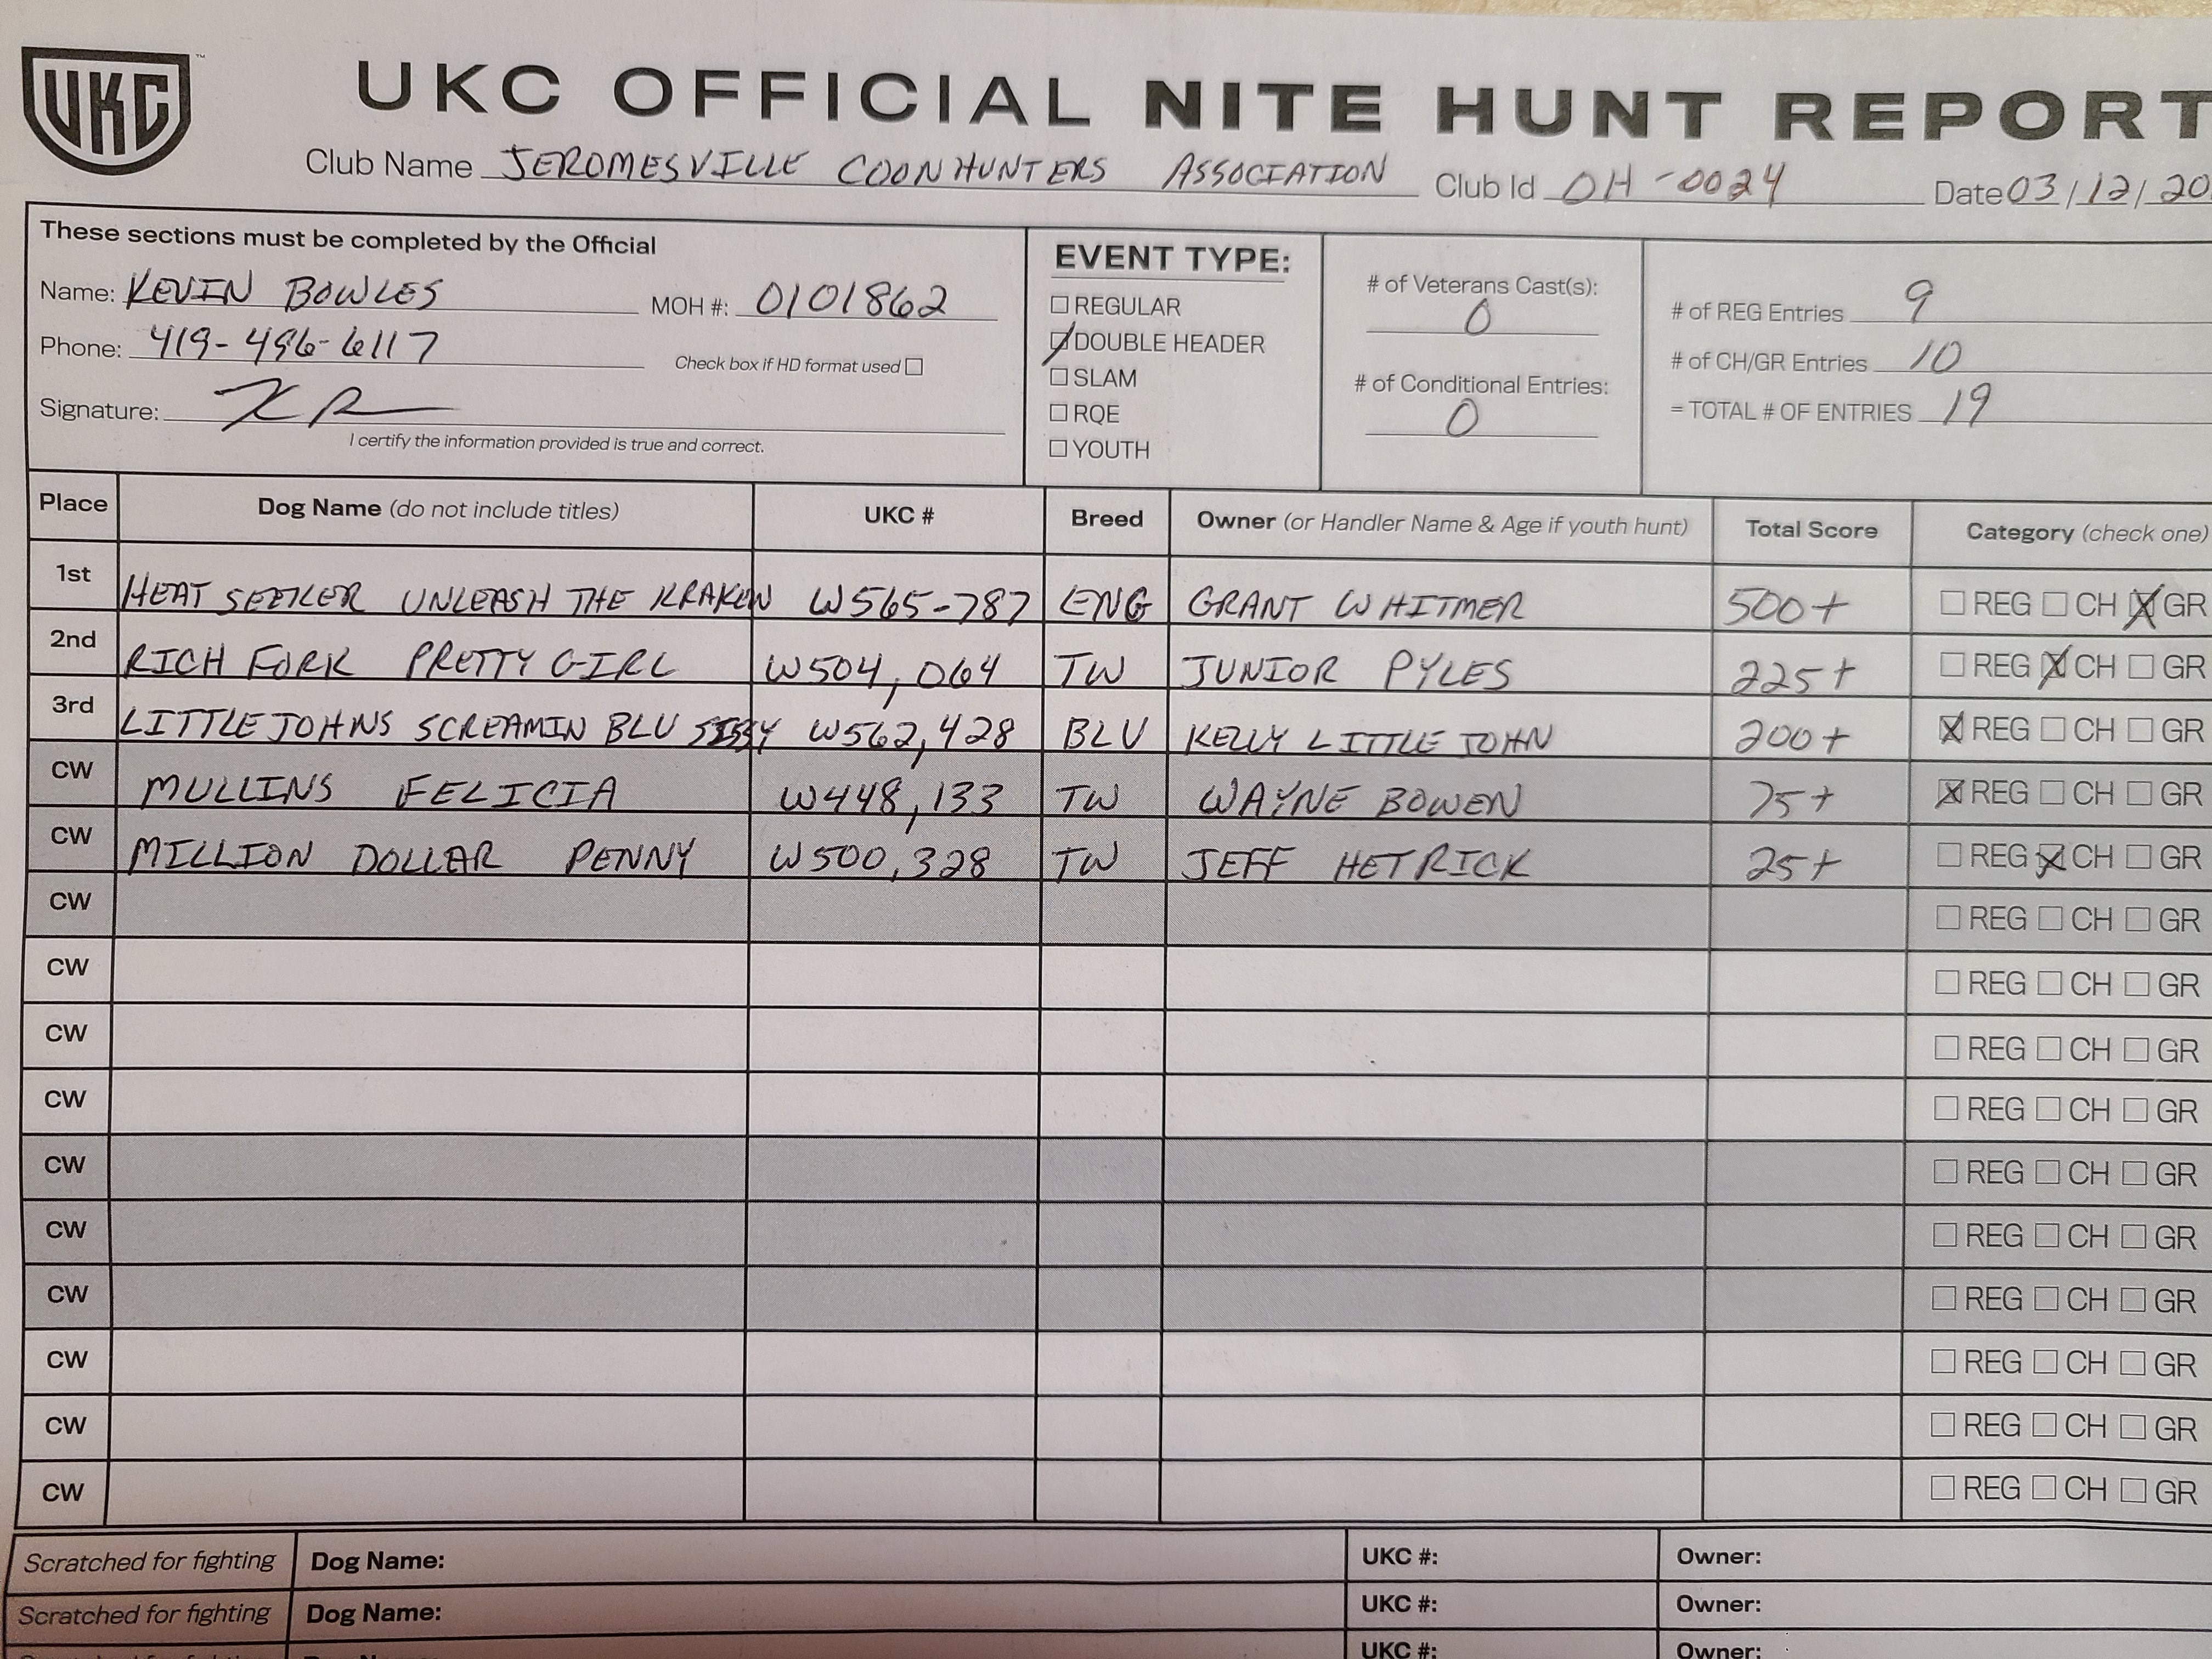 UKC ™
UKC OFFICIAL NITE HUNT REPORT
Club Name JEROMESVILLE COONHUNTERS ASSOCIATION Club Id OH-0024 Date 03/12/20
These sections must be completed by the Official
Name: KEVIN BOWLES MOH #: 0101862
Phone: 419-496-6117 Check box if HD format used ☐
Signature:
I certify the information provided is true and correct.
EVENT TYPE:
☐ REGULAR
☑ DOUBLE HEADER
☐ SLAM
☐ RQE
☐ YOUTH
# of Veterans Cast(s):
0
# of Conditional Entries:
0
# of REG Entries 9
# of CH/GR Entries 10
= TOTAL # OF ENTRIES 19
Place Dog Name (do not include titles) UKC # Breed Owner (or Handler Name & Age if youth hunt) Total Score Category (check one)
1st HEAT SEEKER UNLEASH THE KRAKEN W565-787 ENG GRANT WHITMER 500+ ☐ REG ☐ CH ☒ GR
2nd RICH FORK PRETTY GIRL W504,064 TW JUNIOR PYLES 225+ ☐ REG ☒ CH ☐ GR
3rd LITTLEJOHNS SCREAMIN BLU SISSY W562,428 BLU KELLY LITTLEJOHN 200+ ☒ REG ☐ CH ☐ GR
CW MULLINS FELICIA W448,133 TW WAYNE BOWEN 75+ ☒ REG ☐ CH ☐ GR
CW MILLION DOLLAR PENNY W500,328 TW JEFF HETRICK 25+ ☐ REG ☒ CH ☐ GR
CW ☐ REG ☐ CH ☐ GR
CW ☐ REG ☐ CH ☐ GR
CW ☐ REG ☐ CH ☐ GR
CW ☐ REG ☐ CH ☐ GR
CW ☐ REG ☐ CH ☐ GR
CW ☐ REG ☐ CH ☐ GR
CW ☐ REG ☐ CH ☐ GR
CW ☐ REG ☐ CH ☐ GR
CW ☐ REG ☐ CH ☐ GR
CW ☐ REG ☐ CH ☐ GR
Scratched for fighting Dog Name: UKC #: Owner:
Scratched for fighting Dog Name: UKC #: Owner:
UKC #: Owner: